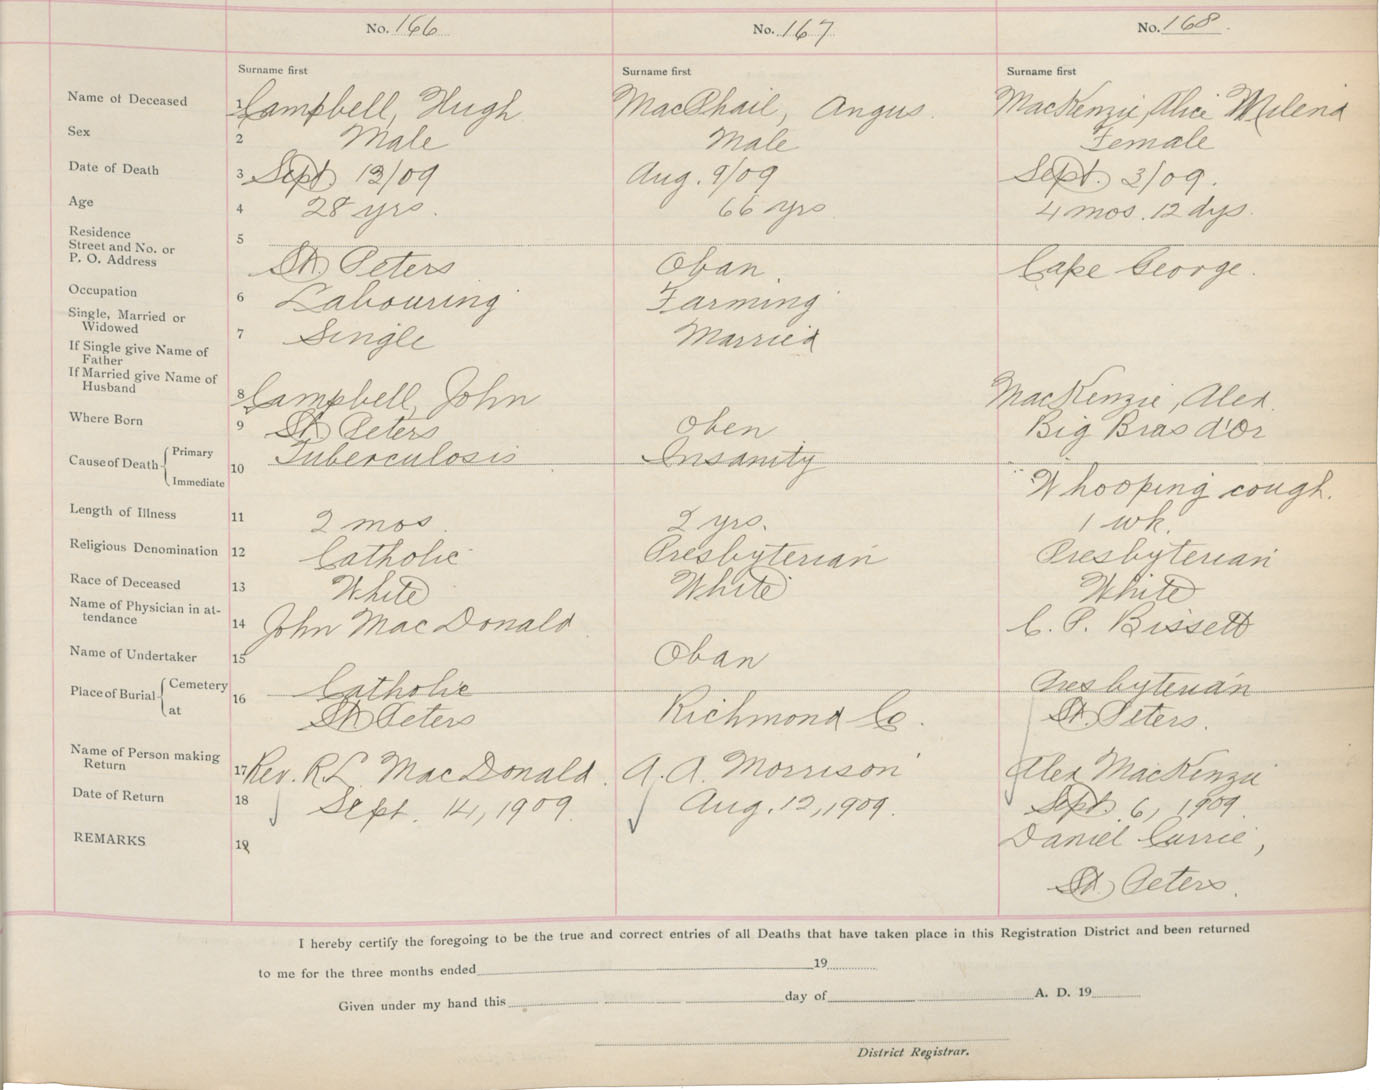 No. 166 No. 167 No. 168
Surname first Surname first Surname first
Name of Deceased 1 Campbell, Hugh MacPhail, Angus. MacKenzie, Alice Milena
Sex 2 Male Male Female
Date of Death 3 Sept. 13/09 Aug. 9/09 Sept. 3/09.
Age 4 28 yrs. 66 yrs 4 mos. 12 dys.
Residence
Street and No. or 5
P. O. Address St. Peters Oban. Cape George.
Occupation 6 Labouring Farming
Single, Married or
Widowed 7 Single Married
If Single give Name of
Father
If Married give Name of
Husband 8 Campbell, John MacKenzie, Alex.
Where Born 9 St. Peters Oben Big Bras d'Or
Cause of Death { Primary 10 Tuberculosis Insanity
Immediate Whooping cough.
Length of Illness 11 2 mos. 2 yrs. 1 wk.
Religious Denomination 12 Catholic Presbyterian Presbyterian
Race of Deceased 13 White White White
Name of Physician in at-
tendance 14 John MacDonald C. P. Bissett
Name of Undertaker 15 Oban
Place of Burial { Cemetery 16 Catholic Presbyterian
at St. Peters Richmond Co. St. Peters.
Name of Person making
Return 17 Rev. R L MacDonald. A. A. Morrison Alex MacKenzie
Date of Return 18 Sept. 14, 1909. Aug. 12, 1909. Sept. 6, 1909.
REMARKS 19 Daniel Currie,
St. Peters.
I hereby certify the foregoing to be the true and correct entries of all Deaths that have taken place in this Registration District and been returned
to me for the three months ended 19
Given under my hand this day of A. D. 19
District Registrar.